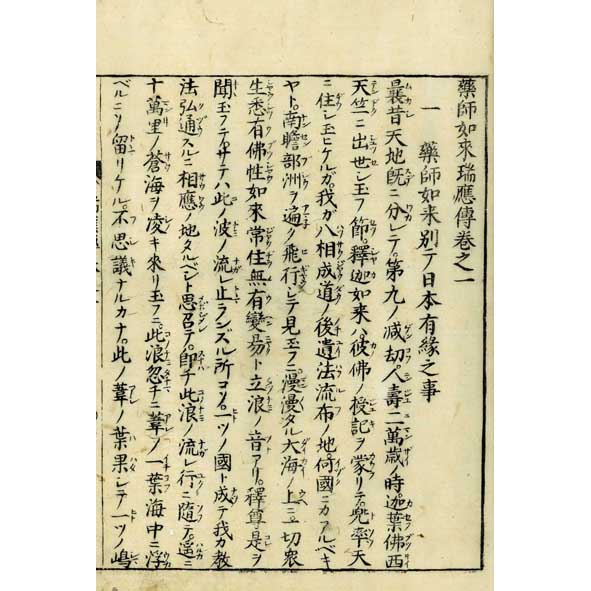 藥師如來瑞應傳卷之一
一 藥師如来別テ日本有縁之事
曩昔天地既ニ分レテ。第九ノ減劫人壽二萬歳ノ時。迦葉佛西
天竺ニ出世シ玉フ節。釋迦如来ハ彼佛ノ授記ヲ蒙リテ。兜率天
ニ住シ玉ヒケルガ。我ガ八相成道ノ後遺法流布ノ地何國ニカアルベキ
ヤト。南瞻部洲ヲ遍ク飛行シテ見玉フニ。漫漫タル大海ノ上ニ一切衆
生悉有佛性如来常住無有變易ト立浪ノ音アリ。釋尊是ヲ
聞玉フテ。サテハ此ノ波ノ流レ止ランズル所コソ。一ツノ國ト成テ我カ教
法弘通スルニ相應ノ地タルベシト思召テ。即チ此浪ノ流レ行ニ随テ。遥ニ
十萬里ノ蒼海ヲ凌キ来リ玉フニ。此浪忽チニ葦ノ一葉海中ニ浮
ベルニソ留リケル。不思議ナルカナ。此ノ葦ノ葉果シテ一ツノ嶋